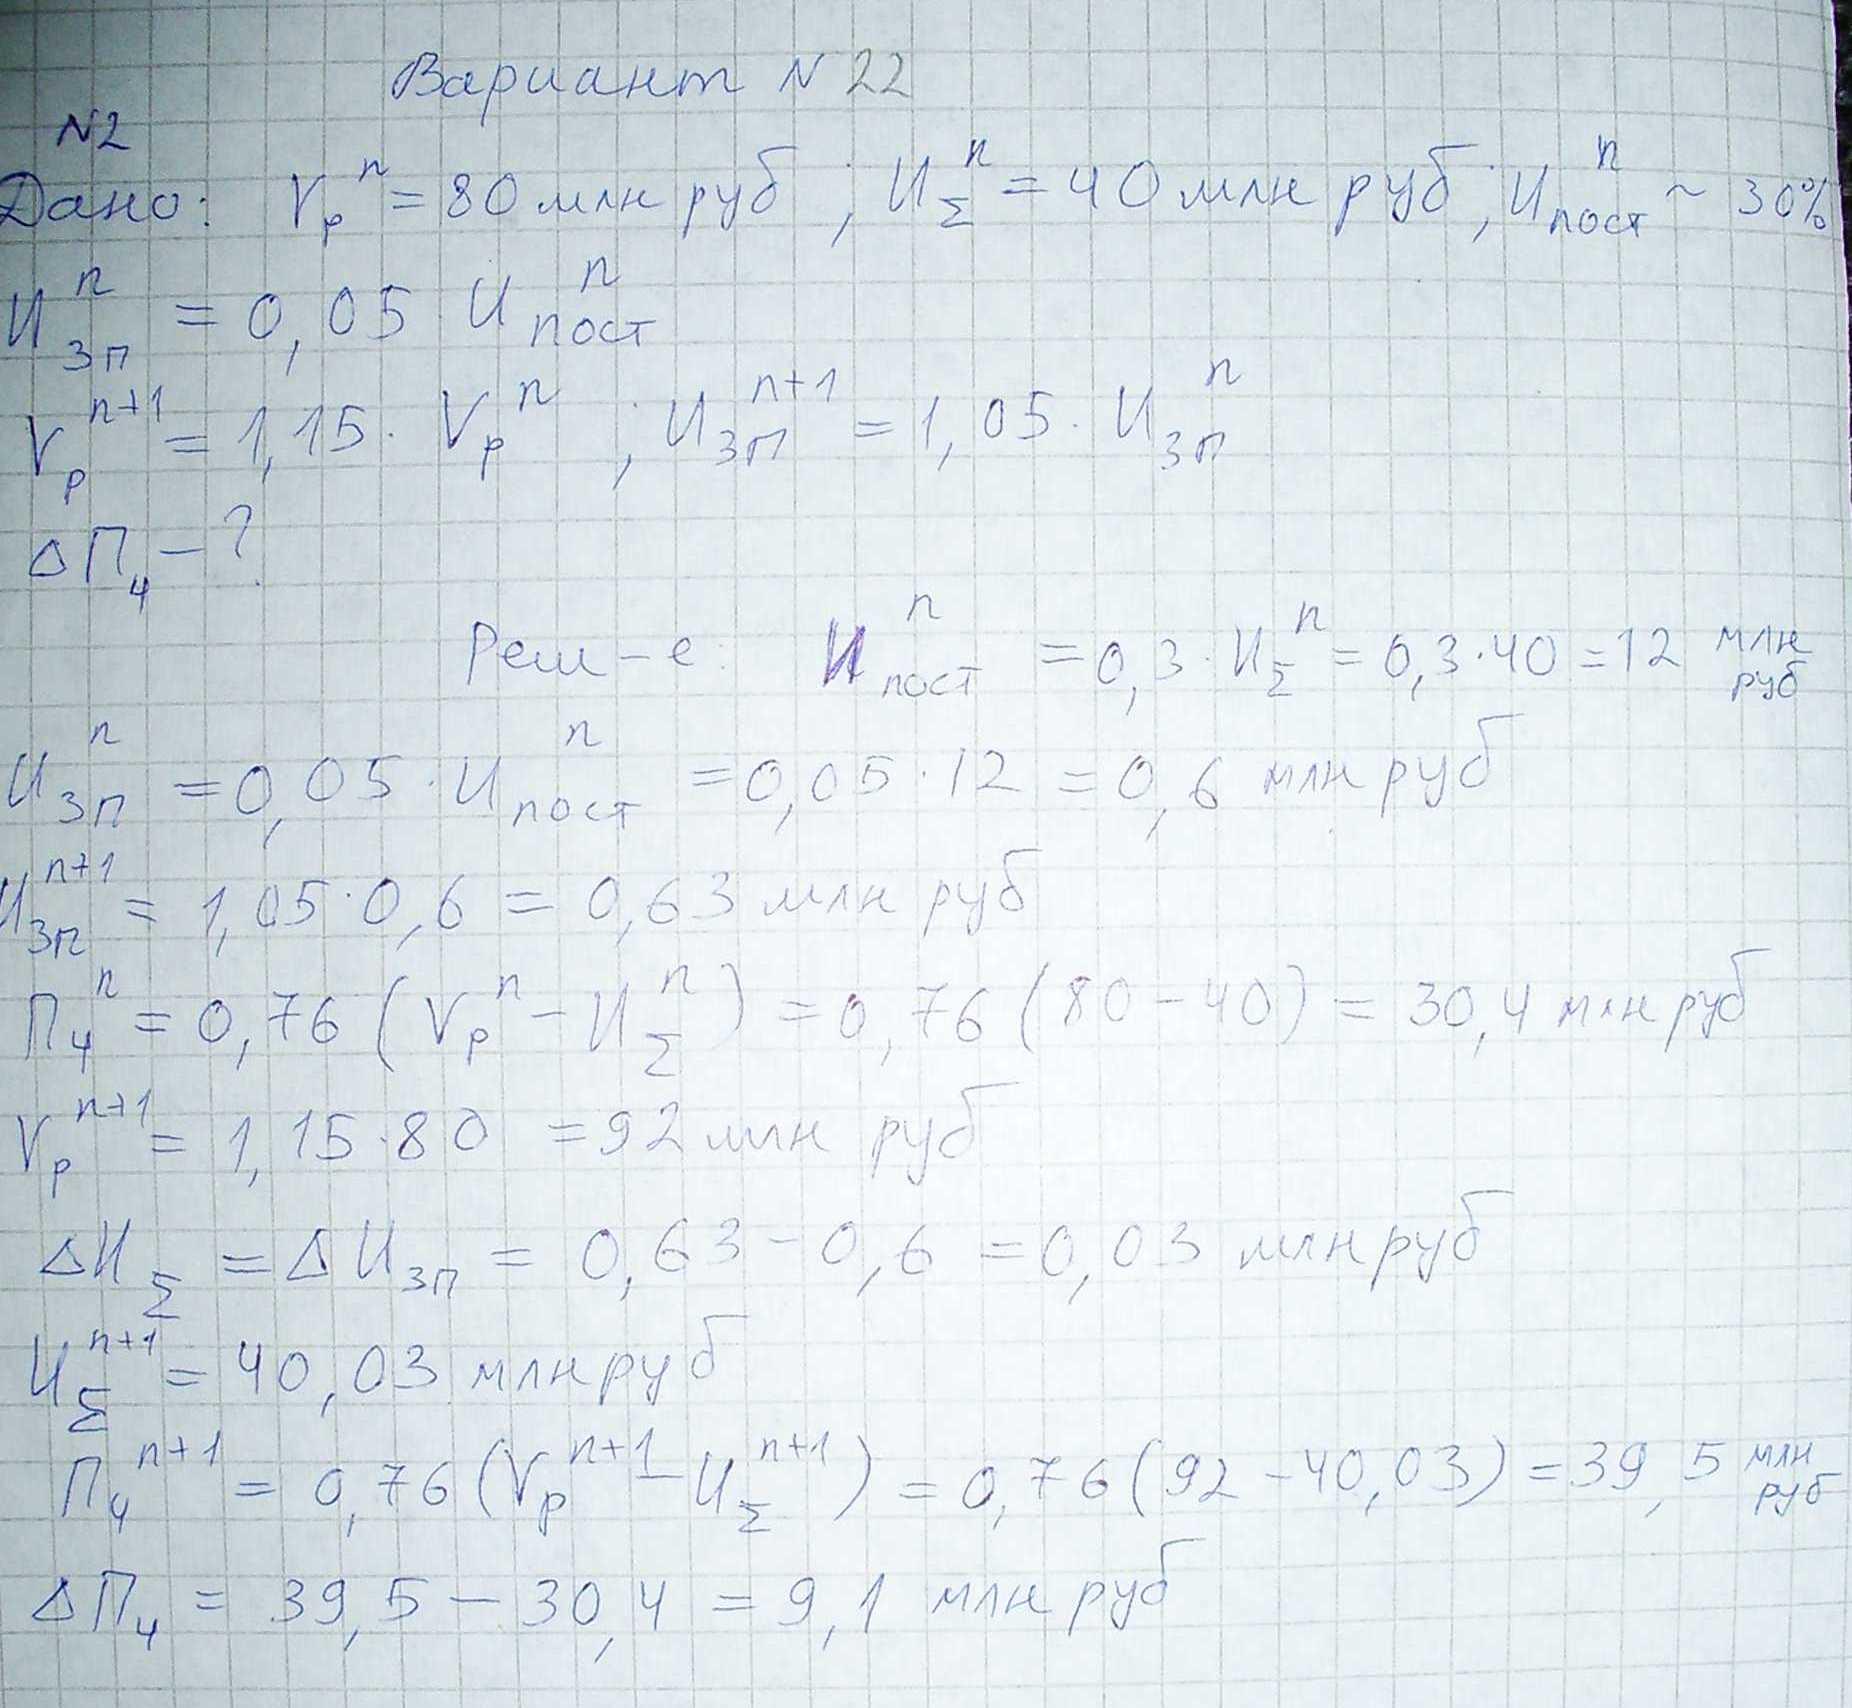 Вариант N 22
N2
Дано: Vр^n = 80 млн руб ; И_Σ^n = 40 млн руб ; И_пост^n ~ 30%
И_зп^n = 0,05 И_пост^n
Vр^n+1 = 1,15 · Vр^n ; И_зп^n+1 = 1,05 · И_зп^n
ΔП_ч – ?
Реш-е: И_пост^n = 0,3 · И_Σ^n = 0,3 · 40 = 12 млн руб
И_зп^n = 0,05 · И_пост^n = 0,05 · 12 = 0,6 млн руб
И_зп^n+1 = 1,05 · 0,6 = 0,63 млн руб
П_ч^n = 0,76 (Vр^n – И_Σ^n) = 0,76 (80 – 40) = 30,4 млн руб
Vр^n+1 = 1,15 · 80 = 92 млн руб
ΔИ_Σ = ΔИ_зп = 0,63 – 0,6 = 0,03 млн руб
И_Σ^n+1 = 40,03 млн руб
П_ч^n+1 = 0,76 (Vр^n+1 – И_Σ^n+1) = 0,76 (92 – 40,03) = 39,5 млн руб
ΔП_ч = 39,5 – 30,4 = 9,1 млн руб